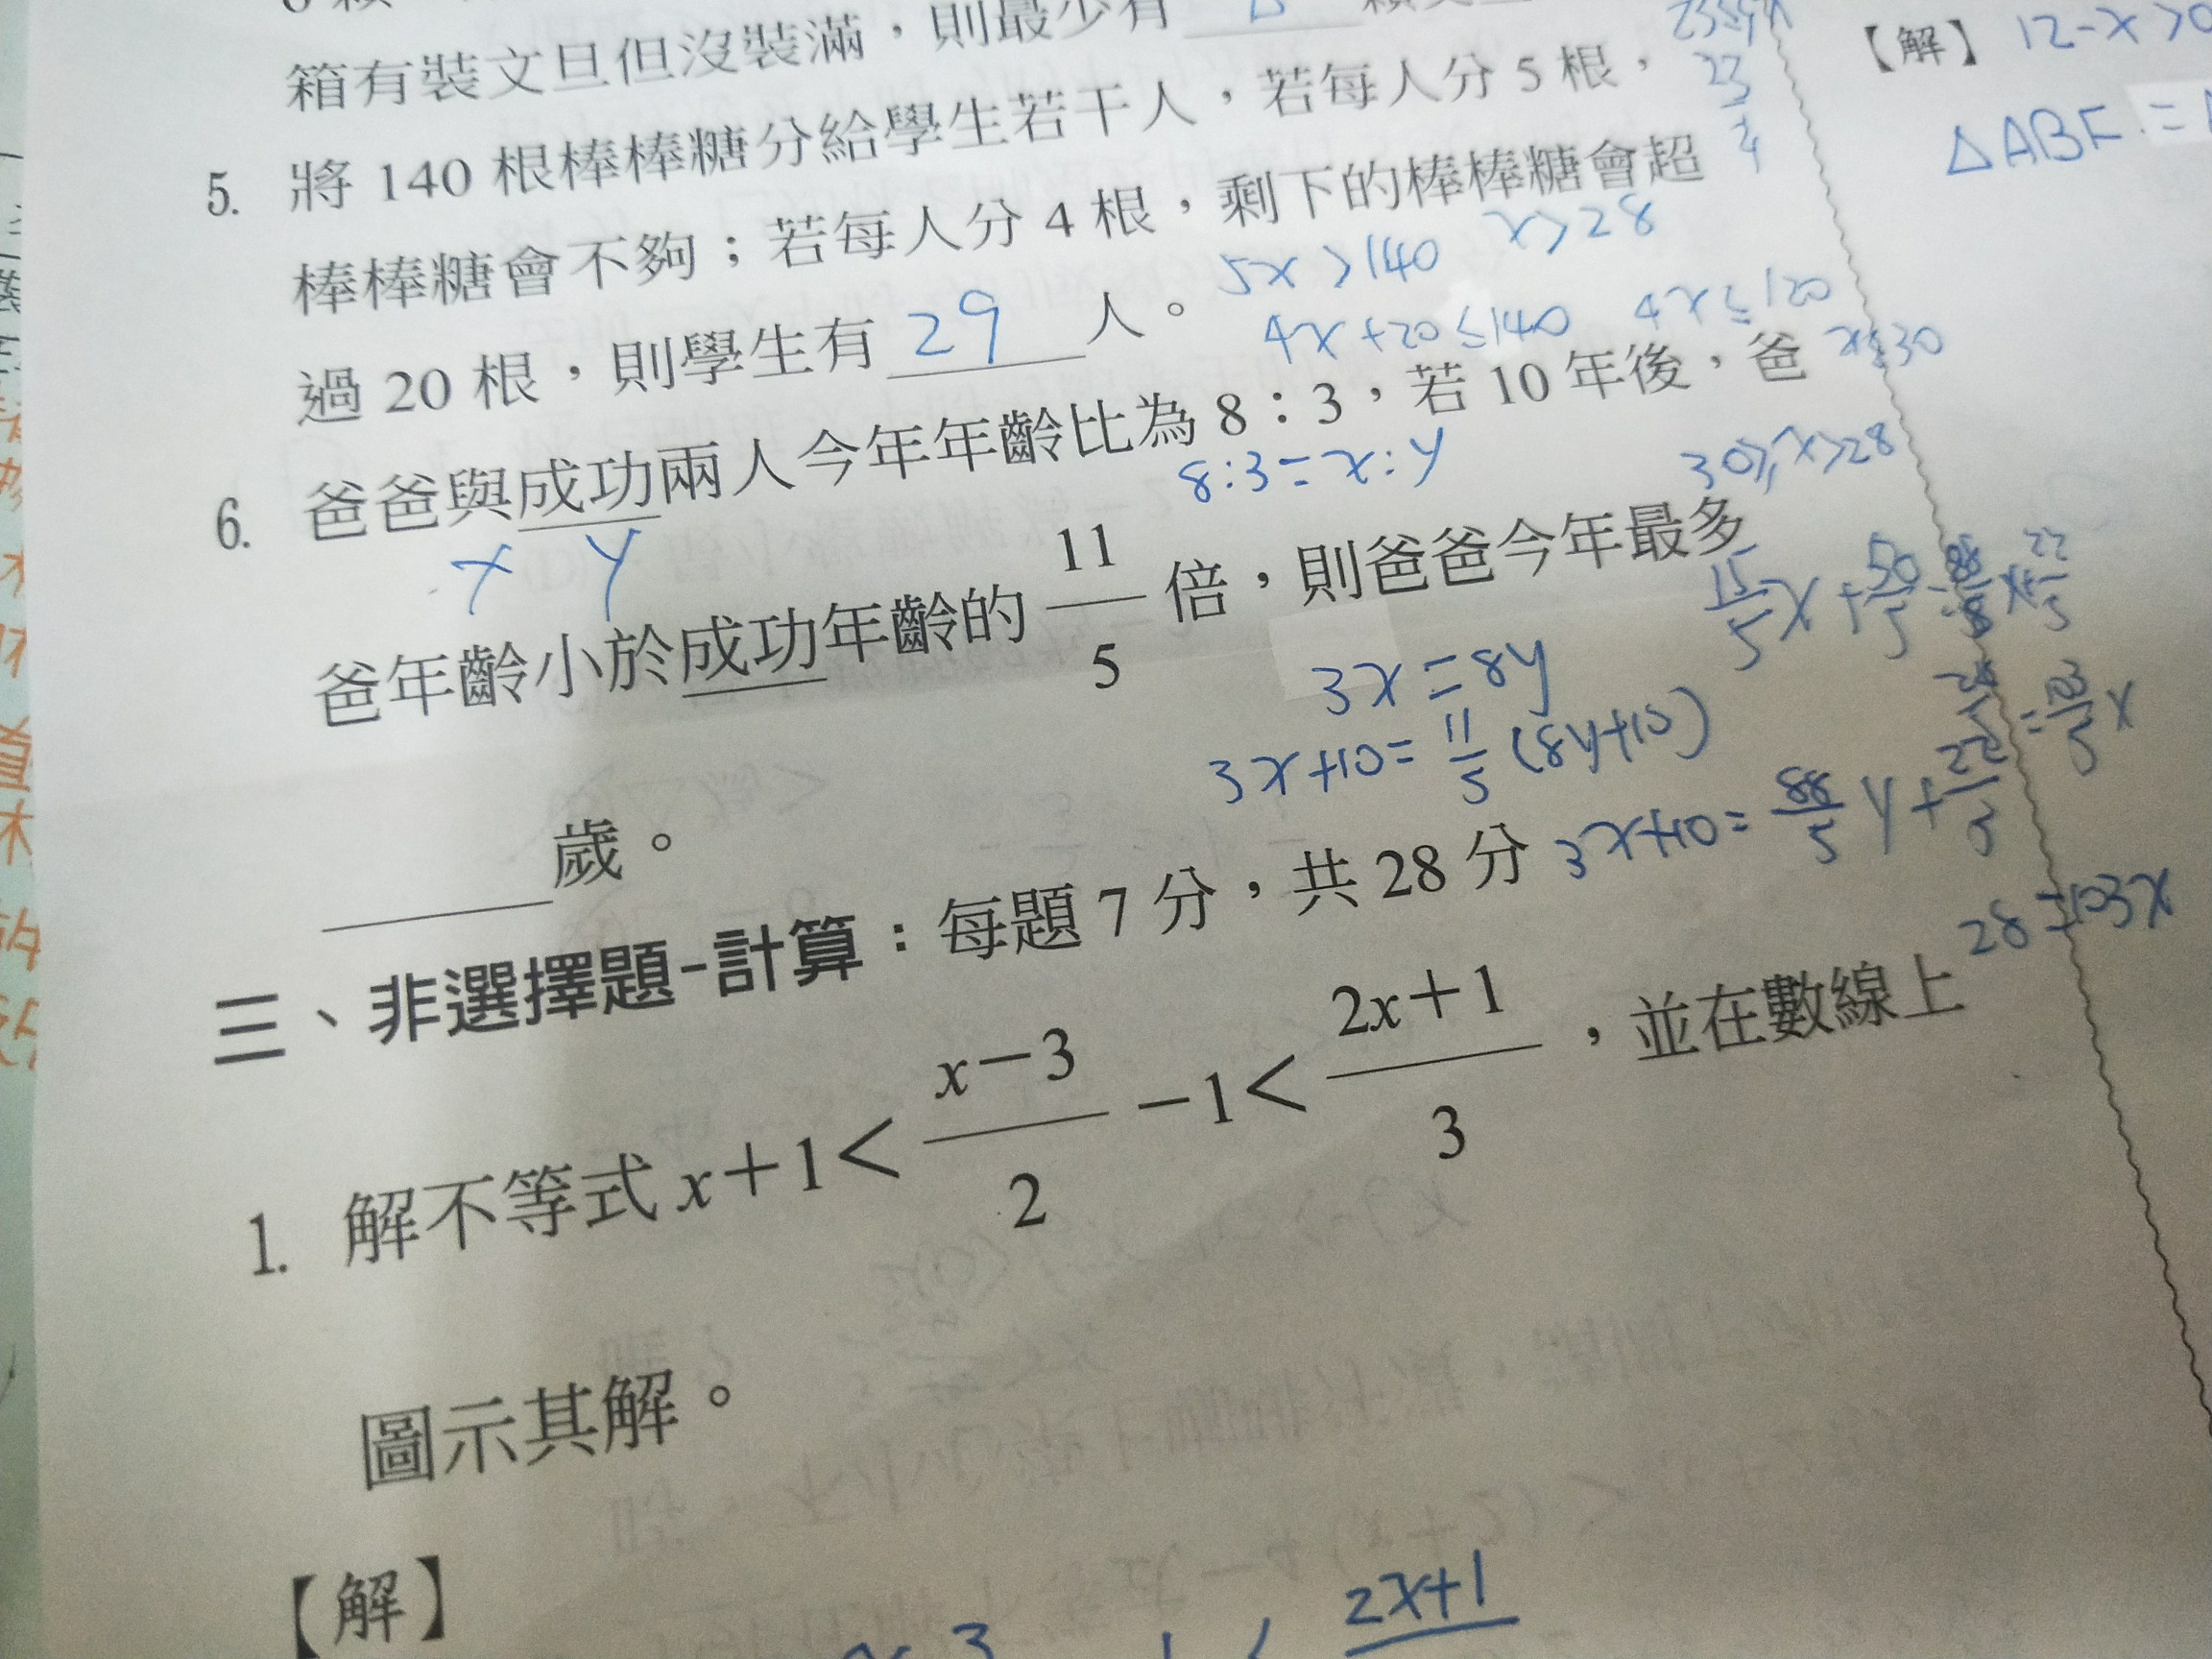 箱有裝文旦但沒裝滿，則最少有
【解】 12-x>0
△ABF =
5. 將 140 根棒棒糖分給學生若干人，若每人分 5 根，
棒棒糖會不夠；若每人分 4 根，剩下的棒棒糖會超
5x>140 x>28
過 20 根，則學生有 29 人。
4x+20≤140 4x≤120
x≤30
30≥x>28
6. 爸爸與成功兩人今年年齡比為 8：3，若 10 年後，爸
x y
8:3=x:y
爸年齡小於成功年齡的 11/5 倍，則爸爸今年最多
3x=8y
3x+10= 11/5 (8y+10)
3x+10= 88/5 y+ 22/5
28=103x
歲。
三、非選擇題-計算：每題 7 分，共 28 分
1. 解不等式 x＋1＜ x－3/2 －1＜ 2x＋1/3 ，並在數線上
圖示其解。
【解】
2x+1